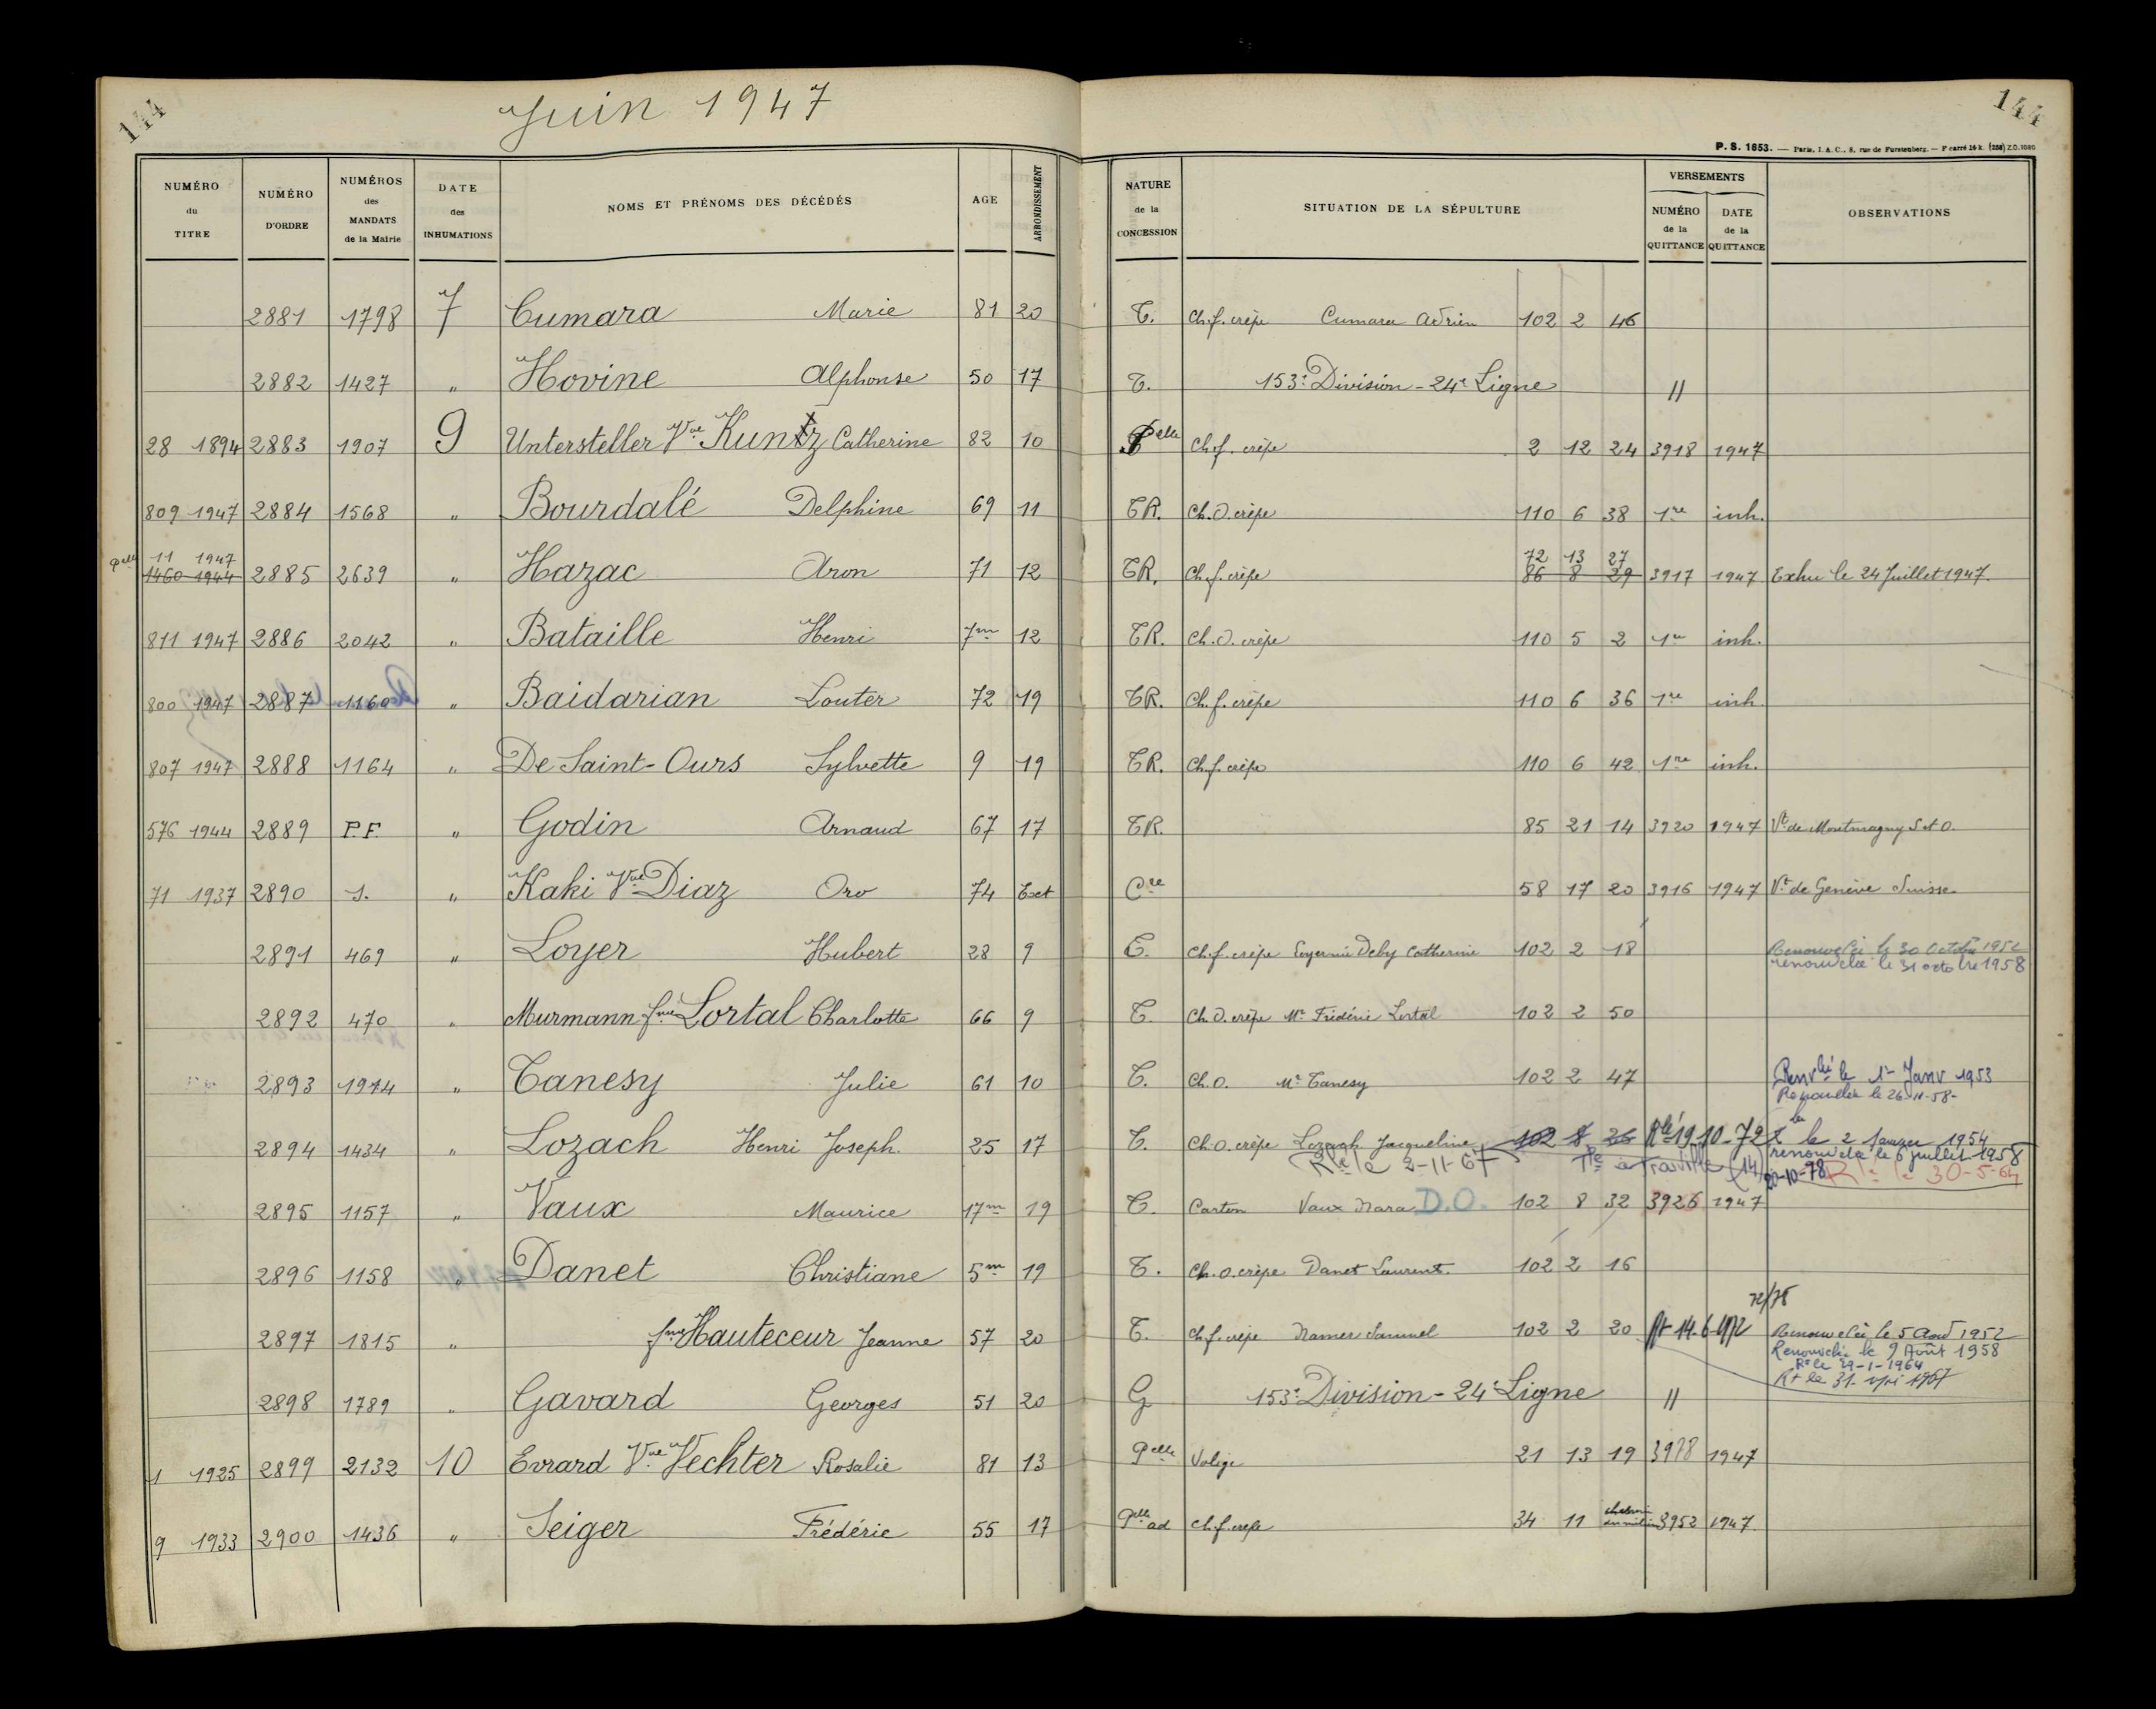 144
Juin 1947
144
P. S. 1653. — Paris, I. A. C., 8, rue de Furstenberg. — F carré 16 k. (258) Z.O. 1080
NUMÉRO du TITRE
NUMÉRO D'ORDRE
NUMÉROS des MANDATS de la Mairie
DATE des INHUMATIONS
NOMS ET PRÉNOMS DES DÉCÉDÉS
AGE
ARRONDISSEMENT
NATURE de la CONCESSION
SITUATION DE LA SÉPULTURE
VERSEMENTS
NUMÉRO de la QUITTANCE
DATE de la QUITTANCE
OBSERVATIONS
2881 1798 7 Cumara Marie 81 20 T. Ch.f. crêpe Cumara Adrien 102 2 46
2882 1427 " Hovine Alphonse 50 17 T. 153e Division - 24e Ligne //
28 1894 2883 1907 9 Untersteller Vve Kuntz Catherine 82 10 Pelle Ch.f. crêpe 2 12 24 3918 1947
809 1947 2884 1568 " Bourdalé Delphine 69 11 TR. Ch.O. crêpe 110 6 38 1re inh.
Pelle 11 1947 72 13 27
1460 1944 2885 2639 " Hazac Aron 71 12 TR. Ch.f. crêpe 86 8 29 3917 1947 Exhu le 24 Juillet 1947.
811 1947 2886 2042 " Bataille Henri 7m 12 TR. Ch.O. crêpe 110 5 2 1re inh.
800 1947 2887 1160 " Baidarian Louter 72 19 TR. Ch.f. crêpe 110 6 36 1re inh.
807 1947 2888 1164 " De Saint-Ours Sylvette 9 19 TR. Ch.f. crêpe 110 6 42 1re inh.
576 1944 2889 P.F. " Godin Arnaud 67 17 TR. 85 21 14 3920 1947 Vt de Montmagny S et O.
71 1937 2890 S. " Kaki Vve Diaz Oro 74 Ext Cre 58 17 20 3916 1947 Vt de Genève Suisse
2891 469 " Loyer Hubert 28 9 T. Ch.f. crêpe Loyer née Deby Catherine 102 2 18 Renouvelée le 30 Octobre 1952
renouvelée le 31 octobre 1958
2892 470 " Murmann fme Lortal Charlotte 66 9 T. Ch.O. crêpe Mr Frédéric Lortal 102 2 50
2893 1914 " Tanesy Julie 61 10 T. Ch.O. Mr Tanesy 102 2 47 Renvlée le 1er Janv 1953
Renouvelée le 26-11-58-
2894 1434 " Lozach Henri Joseph. 25 17 T. Ch.O. crêpe Lozach Jacqueline 102 8 26 Rlé 19-10-72 le 2 Janvier 1954
renouvelée le 6 juillet 1958
Rle le 2-11-67 à Trouville (14) 20-10-78 Rle le 30-5-64
2895 1157 " Vaux Maurice 17m 19 T. Carton Vaux Nara D.O. 102 8 32 3926 1947
2896 1158 " Danet Christiane 5m 19 T. Ch.O. crêpe Danet Laurent. 102 2 16
72/78
2897 1815 " fme Hauteceur Jeanne 57 20 T. Ch.f. crêpe Namer Samuel 102 2 20 Rt 14-6-1972 Renouvelée le 5 Août 1952
Renouvelée le 9 Août 1958
Re le 29-1-1964
Rt le 31- 1967
2898 1789 " Gavard Georges 51 20 G 153e Division - 24e Ligne //
1 1925 2899 2132 10 Evrard Vve Vechter Rosalie 81 13 Pelle Volige 21 13 19 3978 1947
9 1933 2900 1436 " Seiger Frédéric 55 17 Pelle ad Ch.f. crêpe 34 11 chemin du milieu 3952 1947.